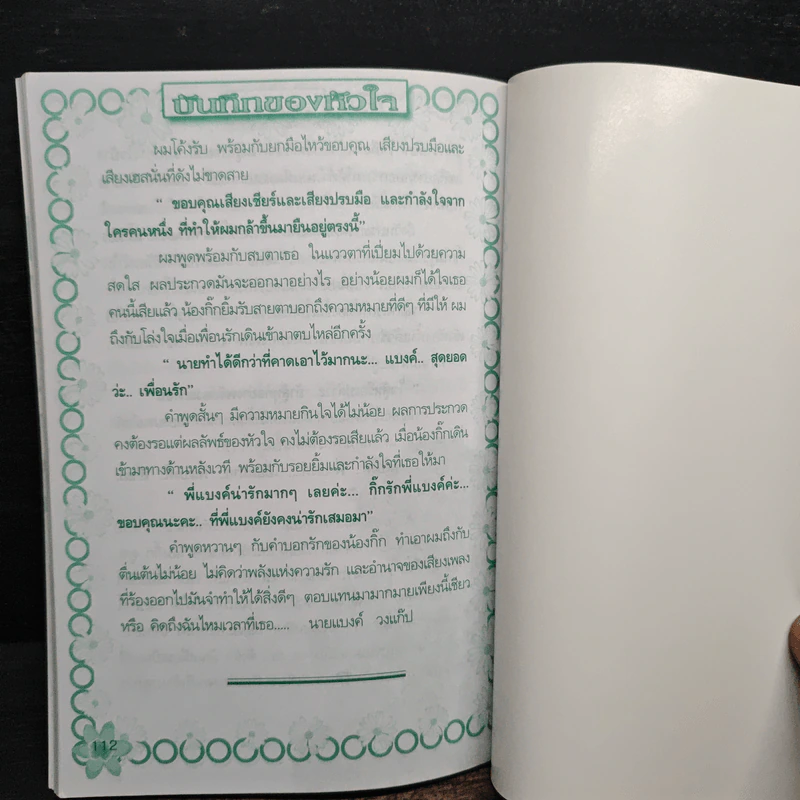 บันทึกของหัวใจ
ผมโค้งรับ พร้อมกับยกมือไหว้ขอบคุณ เสียงปรบมือและ
เสียงเฮสนั่นที่ดังไม่ขาดสาย
“ ขอบคุณเสียงเชียร์และเสียงปรบมือ และกำลังใจจาก
ใครคนหนึ่ง ที่ทำให้ผมกล้าขึ้นมายืนอยู่ตรงนี้”
ผมพูดพร้อมกับสบตาเธอ ในแววตาที่เปี่ยมไปด้วยความ
สดใส ผลประกวดมันจะออกมาอย่างไร อย่างน้อยผมก็ได้ใจเธอ
คนนี้เสียแล้ว น้องกิ๊กยิ้มรับสายตาบอกถึงความหมายที่ดีๆ ที่มีให้ ผม
ถึงกับโล่งใจเมื่อเพื่อนรักเดินเข้ามาตบไหล่อีกครั้ง
“ นายทำได้ดีกว่าที่คาดเอาไว้มากนะ... แบงค์.. สุดยอด
ว่ะ.. เพื่อนรัก”
คำพูดสั้นๆ มีความหมายกินใจได้ไม่น้อย ผลการประกวด
คงต้องรอแต่ผลลัพธ์ของหัวใจ คงไม่ต้องรอเสียแล้ว เมื่อน้องกิ๊กเดิน
เข้ามาทางด้านหลังเวที พร้อมกับรอยยิ้มและกำลังใจที่เธอให้มา
“ พี่แบงค์น่ารักมากๆ เลยค่ะ... กิ๊กรักพี่แบงค์ค่ะ...
ขอบคุณนะคะ.. ที่พี่แบงค์ยังคงน่ารักเสมอมา”
คำพูดหวานๆ กับคำบอกรักของน้องกิ๊ก ทำเอาผมถึงกับ
ตื่นเต้นไม่น้อย ไม่คิดว่าพลังแห่งความรัก และอำนาจของเสียงเพลง
ที่ร้องออกไปมันจำทำให้ได้สิ่งดีๆ ตอบแทนมามากมายเพียงนี้เชียว
หรือ คิดถึงฉันไหมเวลาที่เธอ..... นายแบงค์ วงแก๊ป
112